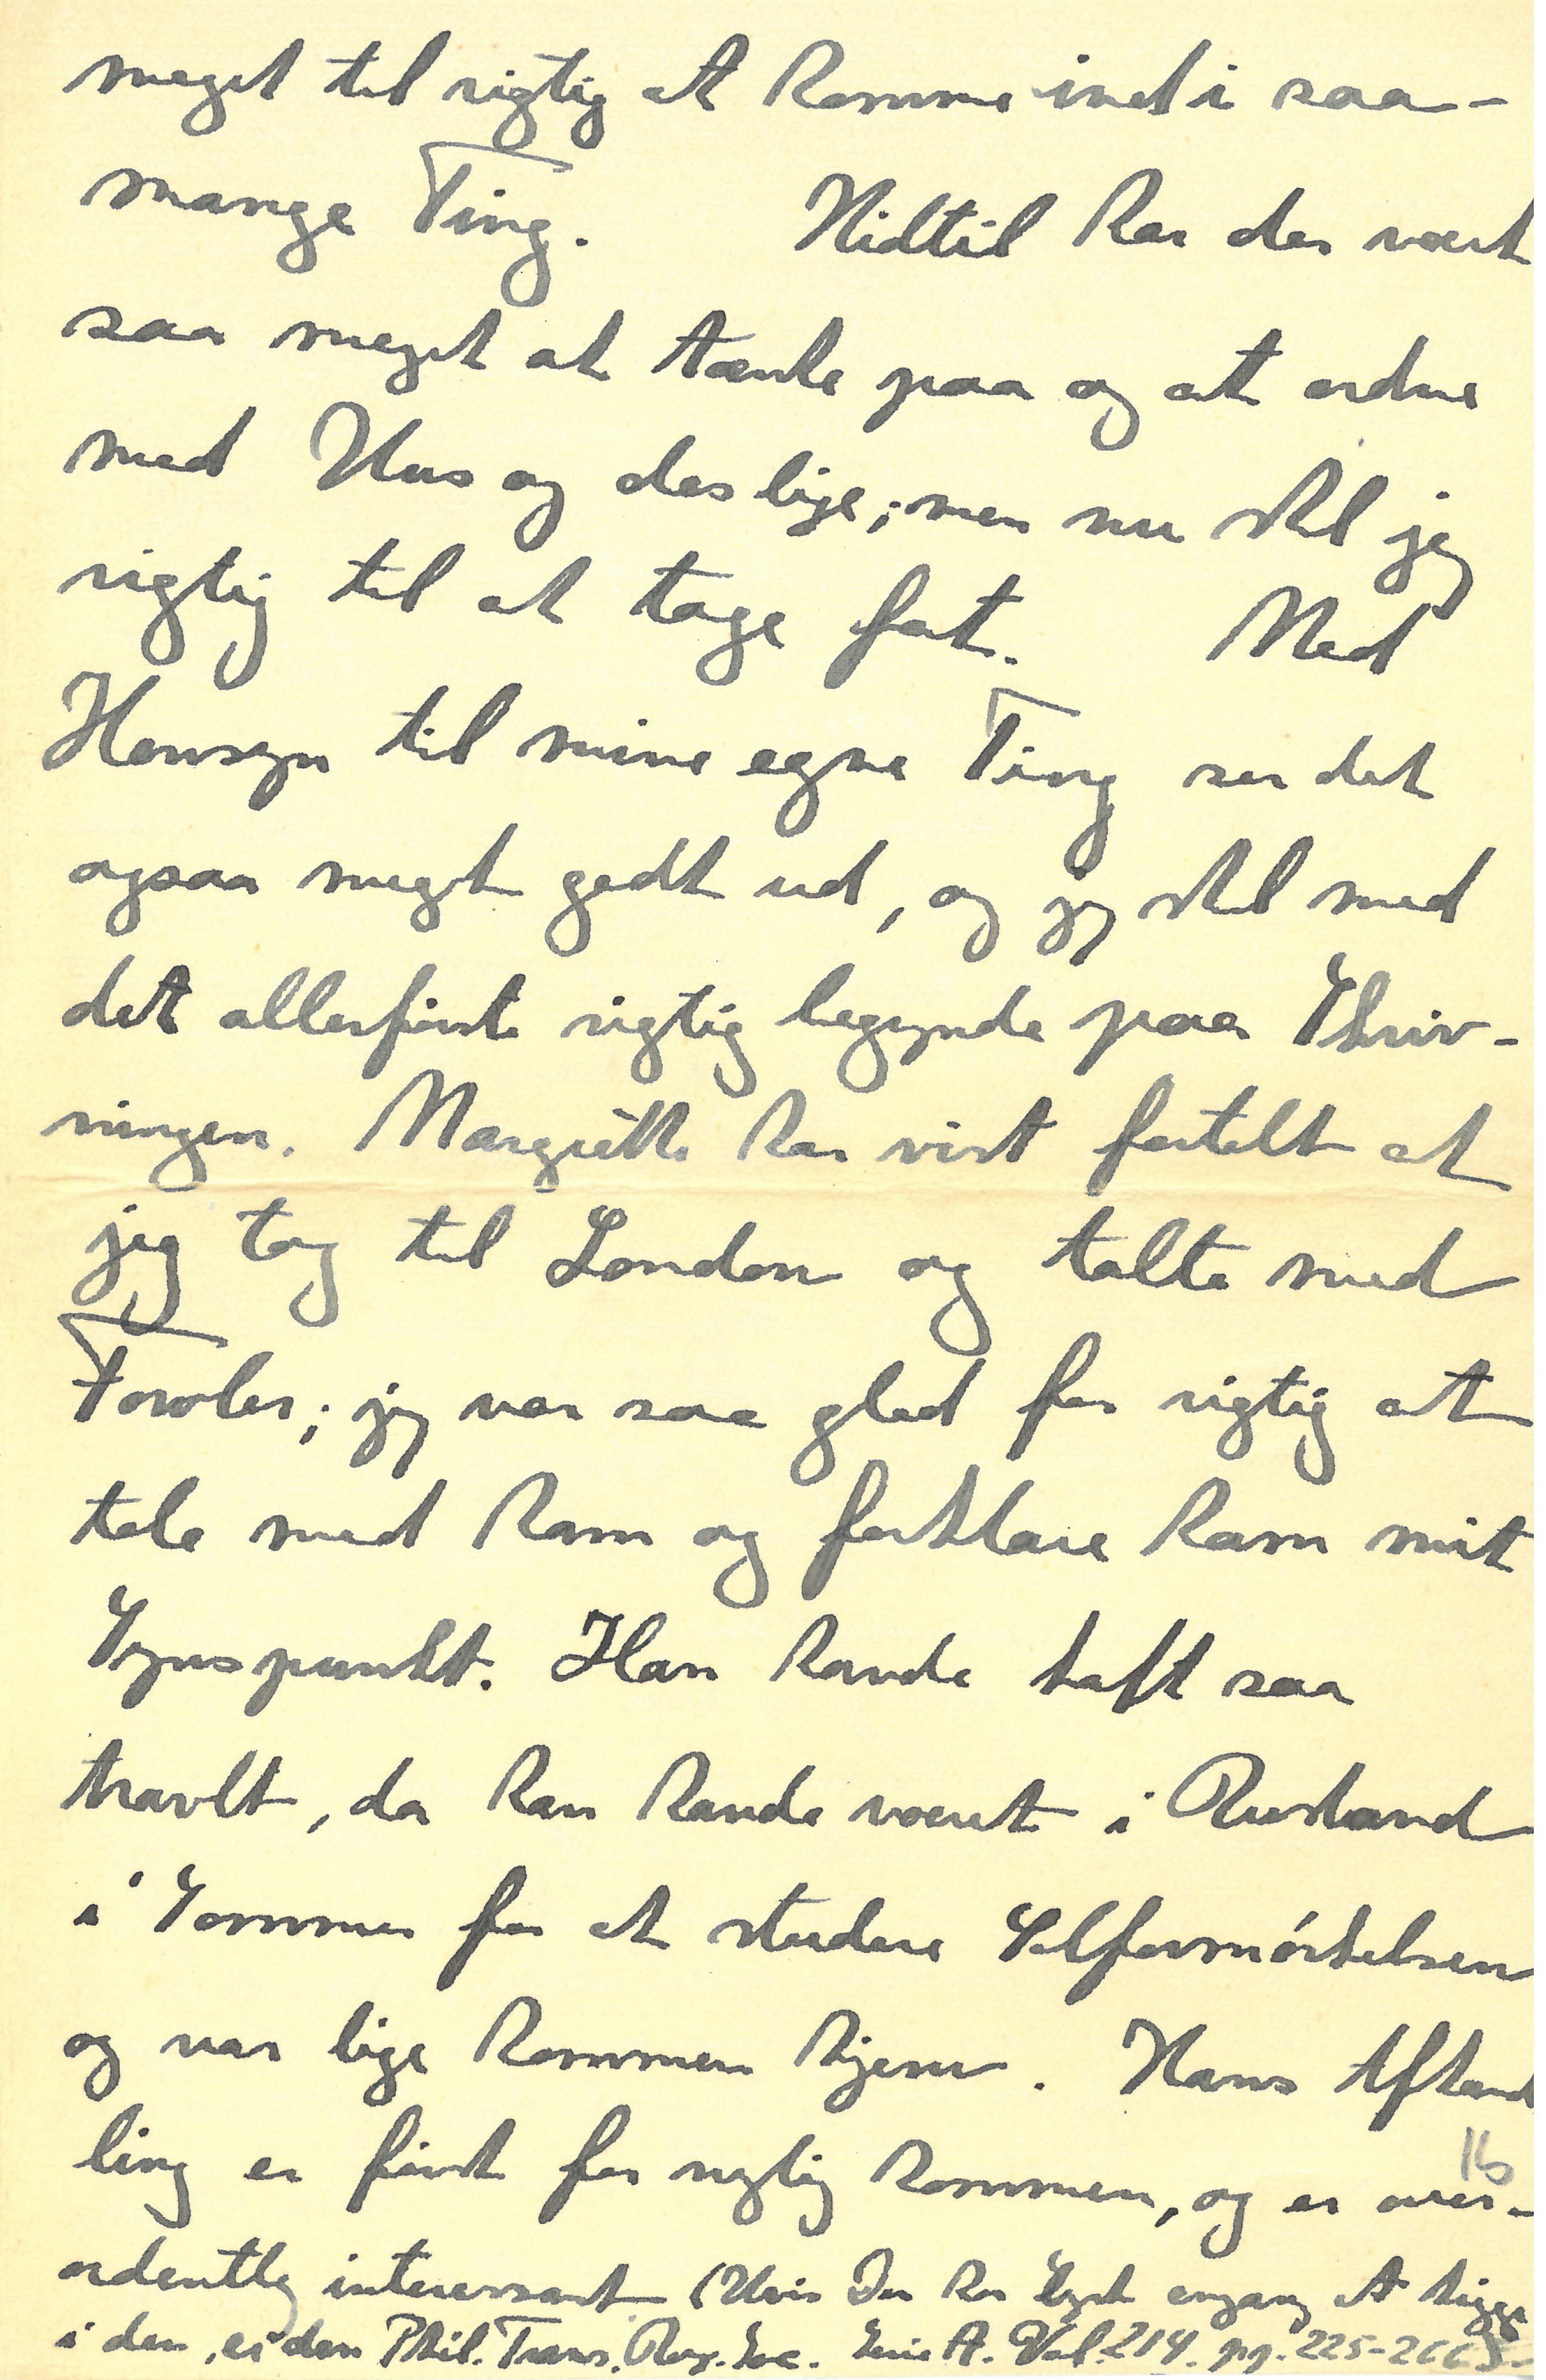 meget til rigtig at komme ind i saa-
mange Ting. Hidtil har der vært
saa meget at tænke paa og at ordne
med Hus og des lige; men nu skal jeg
rigtig til at tage fat. Med
Hensyn til mine egne Ting ser det
ogsaa meget godt ud, og jeg skal med
det allerførste rigtig begynde paa Skriv-
ningen. Margrethe har vist fortalt at
jeg tog til London og talte med
Fowler; jeg var saa glad for rigtig at
tale med ham og forklare ham mit
Synspunkt. Han havde haft saa
travlt, da han havde været i Rusland
i Sommer for at studere Solformørkelsen
og var lige kommen hjem. Hans Afhand
ling er først for nylig kommen, og er over-
16
ordentlig interessant (Hvis Du har Lyst engang at kigge
i den, er den Phil. Trans. Roy. Soc. Serie A. Vol. 214. pp. 225-266